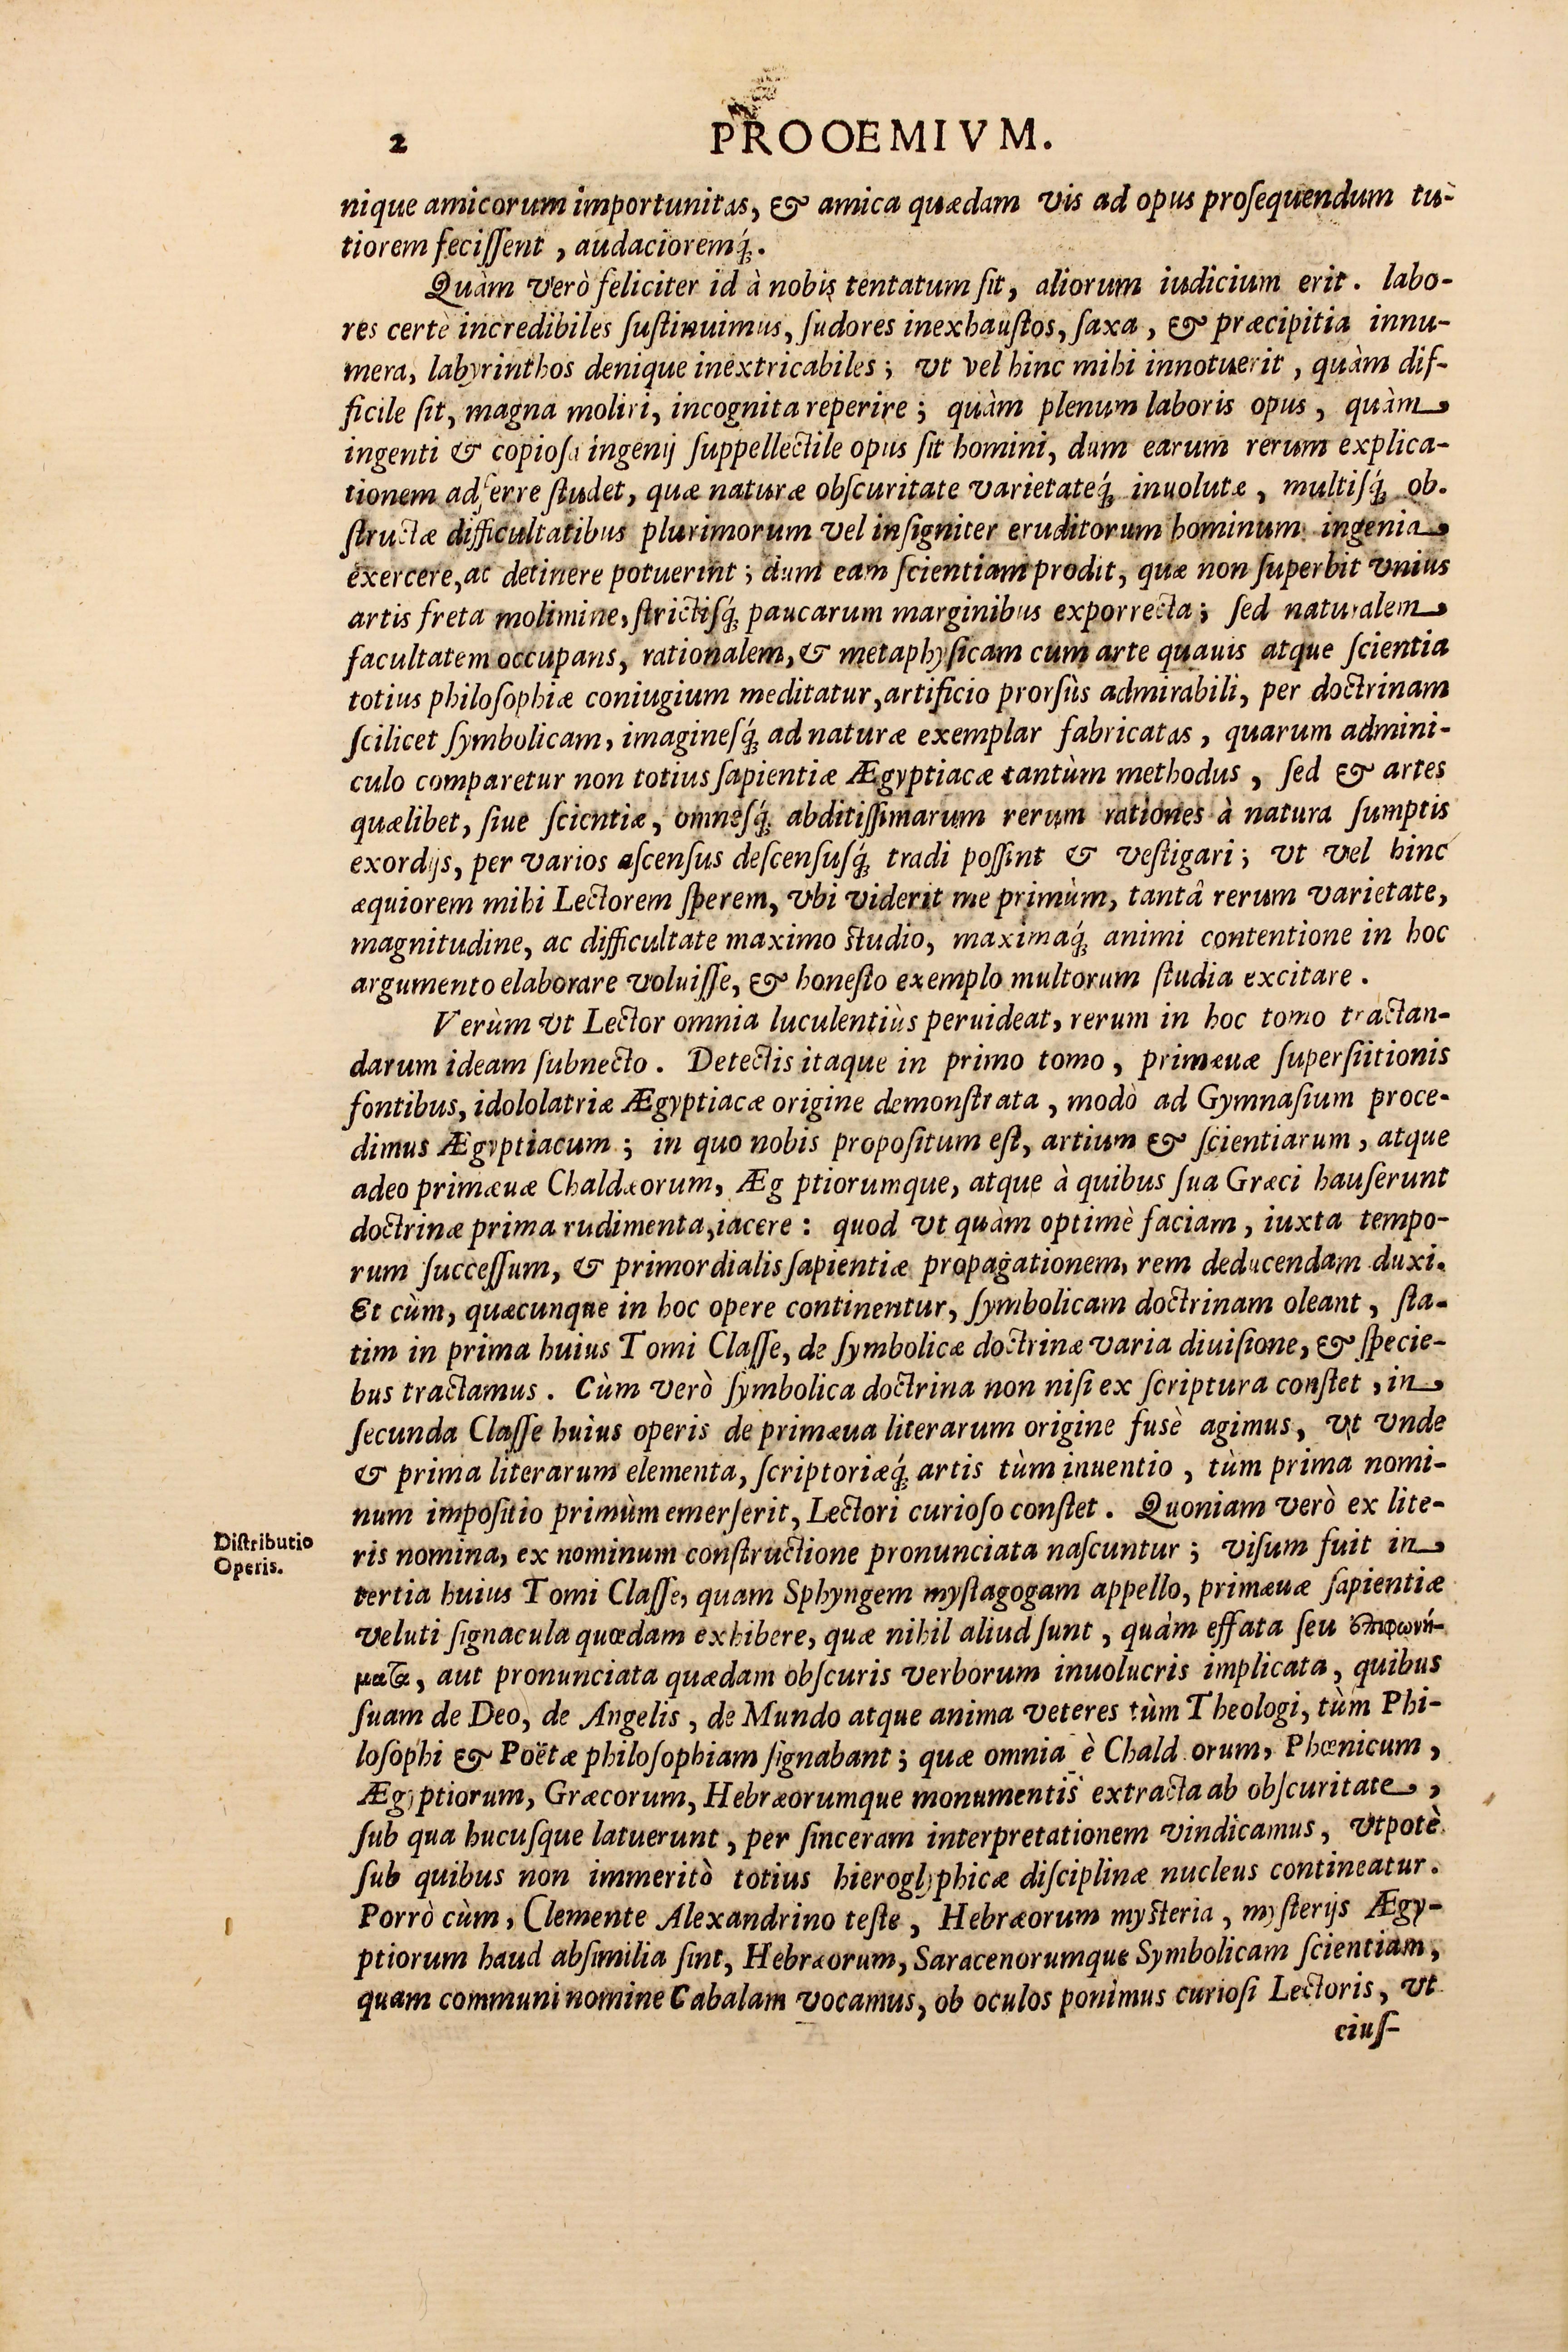 2 PROOEMIVM.
nique amicorum importunitas, & amica quædam vis ad opus proſequendum tu-
tiorem feciſſent , audacioremq́;.
Quàm verò feliciter id à nobis tentatum ſit, aliorum iudicium erit. labo-
res certè incredibiles ſuſtinuimus, ſudores inexhauſtos, ſaxa, & præcipitia innu-
mera, labyrinthos denique inextricabiles; vt vel hinc mihi innotuerit, quàm dif-
ficile ſit, magna moliri, incognita reperire; quàm plenum laboris opus, quàm
ingenti & copioſa ingenij ſuppellectile opus ſit homini, dum earum rerum explica-
tionem adferre ſtudet, quæ naturæ obſcuritate varietateq́; inuolutæ, multiſq́; ob.
ſtructæ difficultatibus plurimorum vel inſigniter eruditorum hominum ingenia
exercere, ac detinere potuerint; dum eam ſcientiam prodit, quæ non ſuperbit vnius
artis freta molimine, ſtrictiſq́; paucarum marginibus exporrecta; ſed naturalem
facultatem occupans, rationalem, & metaphyſicam cum arte quauis atque ſcientia
totius philoſophiæ coniugium meditatur, artificio prorſùs admirabili, per doctrinam
ſcilicet ſymbolicam, imagineſq́; ad naturæ exemplar fabricatas, quarum admini-
culo comparetur non totius ſapientiæ Ægyptiacæ tantùm methodus, ſed & artes
quælibet, ſiue ſcientiæ, omneſq́; abditiſſimarum rerum rationes à natura ſumptis
exordijs, per varios aſcenſus deſcenſuſq́; tradi poſſint & veſtigari; vt vel hinc
æquiorem mihi Lectorem ſperem, vbi viderit me primùm, tantâ rerum varietate,
magnitudine, ac difficultate maximo ſtudio, maximaq́; animi contentione in hoc
argumento elaborare voluiſſe, & honeſto exemplo multorum ſtudia excitare.
Verùm vt Lector omnia luculentiùs peruideat, rerum in hoc tomo tractan-
darum ideam ſubnecto. Detectis itaque in primo tomo, primæuæ ſuperſiitionis
fontibus, idololatriæ Ægyptiacæ origine demonſtrata, modò ad Gymnaſium proce-
dimus Ægyptiacum; in quo nobis propoſitum eſt, artium & ſcientiarum, atque
adeo primæuæ Chaldæorum, Æg ptiorumque, atque à quibus ſua Græci hauſerunt
doctrinæ prima rudimenta, iacere: quod vt quàm optimè faciam, iuxta tempo-
rum ſucceſſum, & primordialis ſapientiæ propagationem, rem deducendam duxi.
Et cùm, quæcunque in hoc opere continentur, ſymbolicam doctrinam oleant, ſta-
tim in prima huius Tomi Claſſe, de ſymbolicæ doctrinæ varia diuiſione, & ſpecie-
bus tractamus. Cùm verò ſymbolica doctrina non niſi ex ſcriptura conſtet, in
ſecunda Claſſe huius operis de primæua literarum origine fusè agimus, vt vnde
& prima literarum elementa, ſcriptoriæq́; artis tùm inuentio, tùm prima nomi-
num impoſitio primùm emerſerit, Lectori curioſo conſtet. Quoniam verò ex lite-
Diſtributio
Operis.
ris nomina, ex nominum conſtructione pronunciata naſcuntur; viſum fuit in
tertia huius Tomi Claſſe, quam Sphyngem myſtagogam appello, primæuæ ſapientiæ
veluti ſignacula quœdam exhibere, quæ nihil aliud ſunt, quàm effata ſeu ἐπιφωνή-
ματα, aut pronunciata quædam obſcuris verborum inuolucris implicata, quibus
ſuam de Deo, de Angelis, de Mundo atque anima veteres tùm Theologi, tùm Phi-
loſophi & Poëtæ philoſophiam ſignabant; quæ omnia è Chald orum, Phœnicum,
Ægyptiorum, Græcorum, Hebræorumque monumentis extracta ab obſcuritate,
ſub qua hucuſque latuerunt, per ſinceram interpretationem vindicamus, vtpotè
ſub quibus non immeritò totius hieroglyphicæ diſciplinæ nucleus contineatur.
Porrò cùm, Clemente Alexandrino teſte, Hebræorum myſteria, myſterijs Ægy-
ptiorum haud abſimilia ſint, Hebræorum, Saracenorumque Symbolicam ſcientiam,
quam communi nomine Cabalam vocamus, ob oculos ponimus curioſi Lectoris, vt
eiuſ-